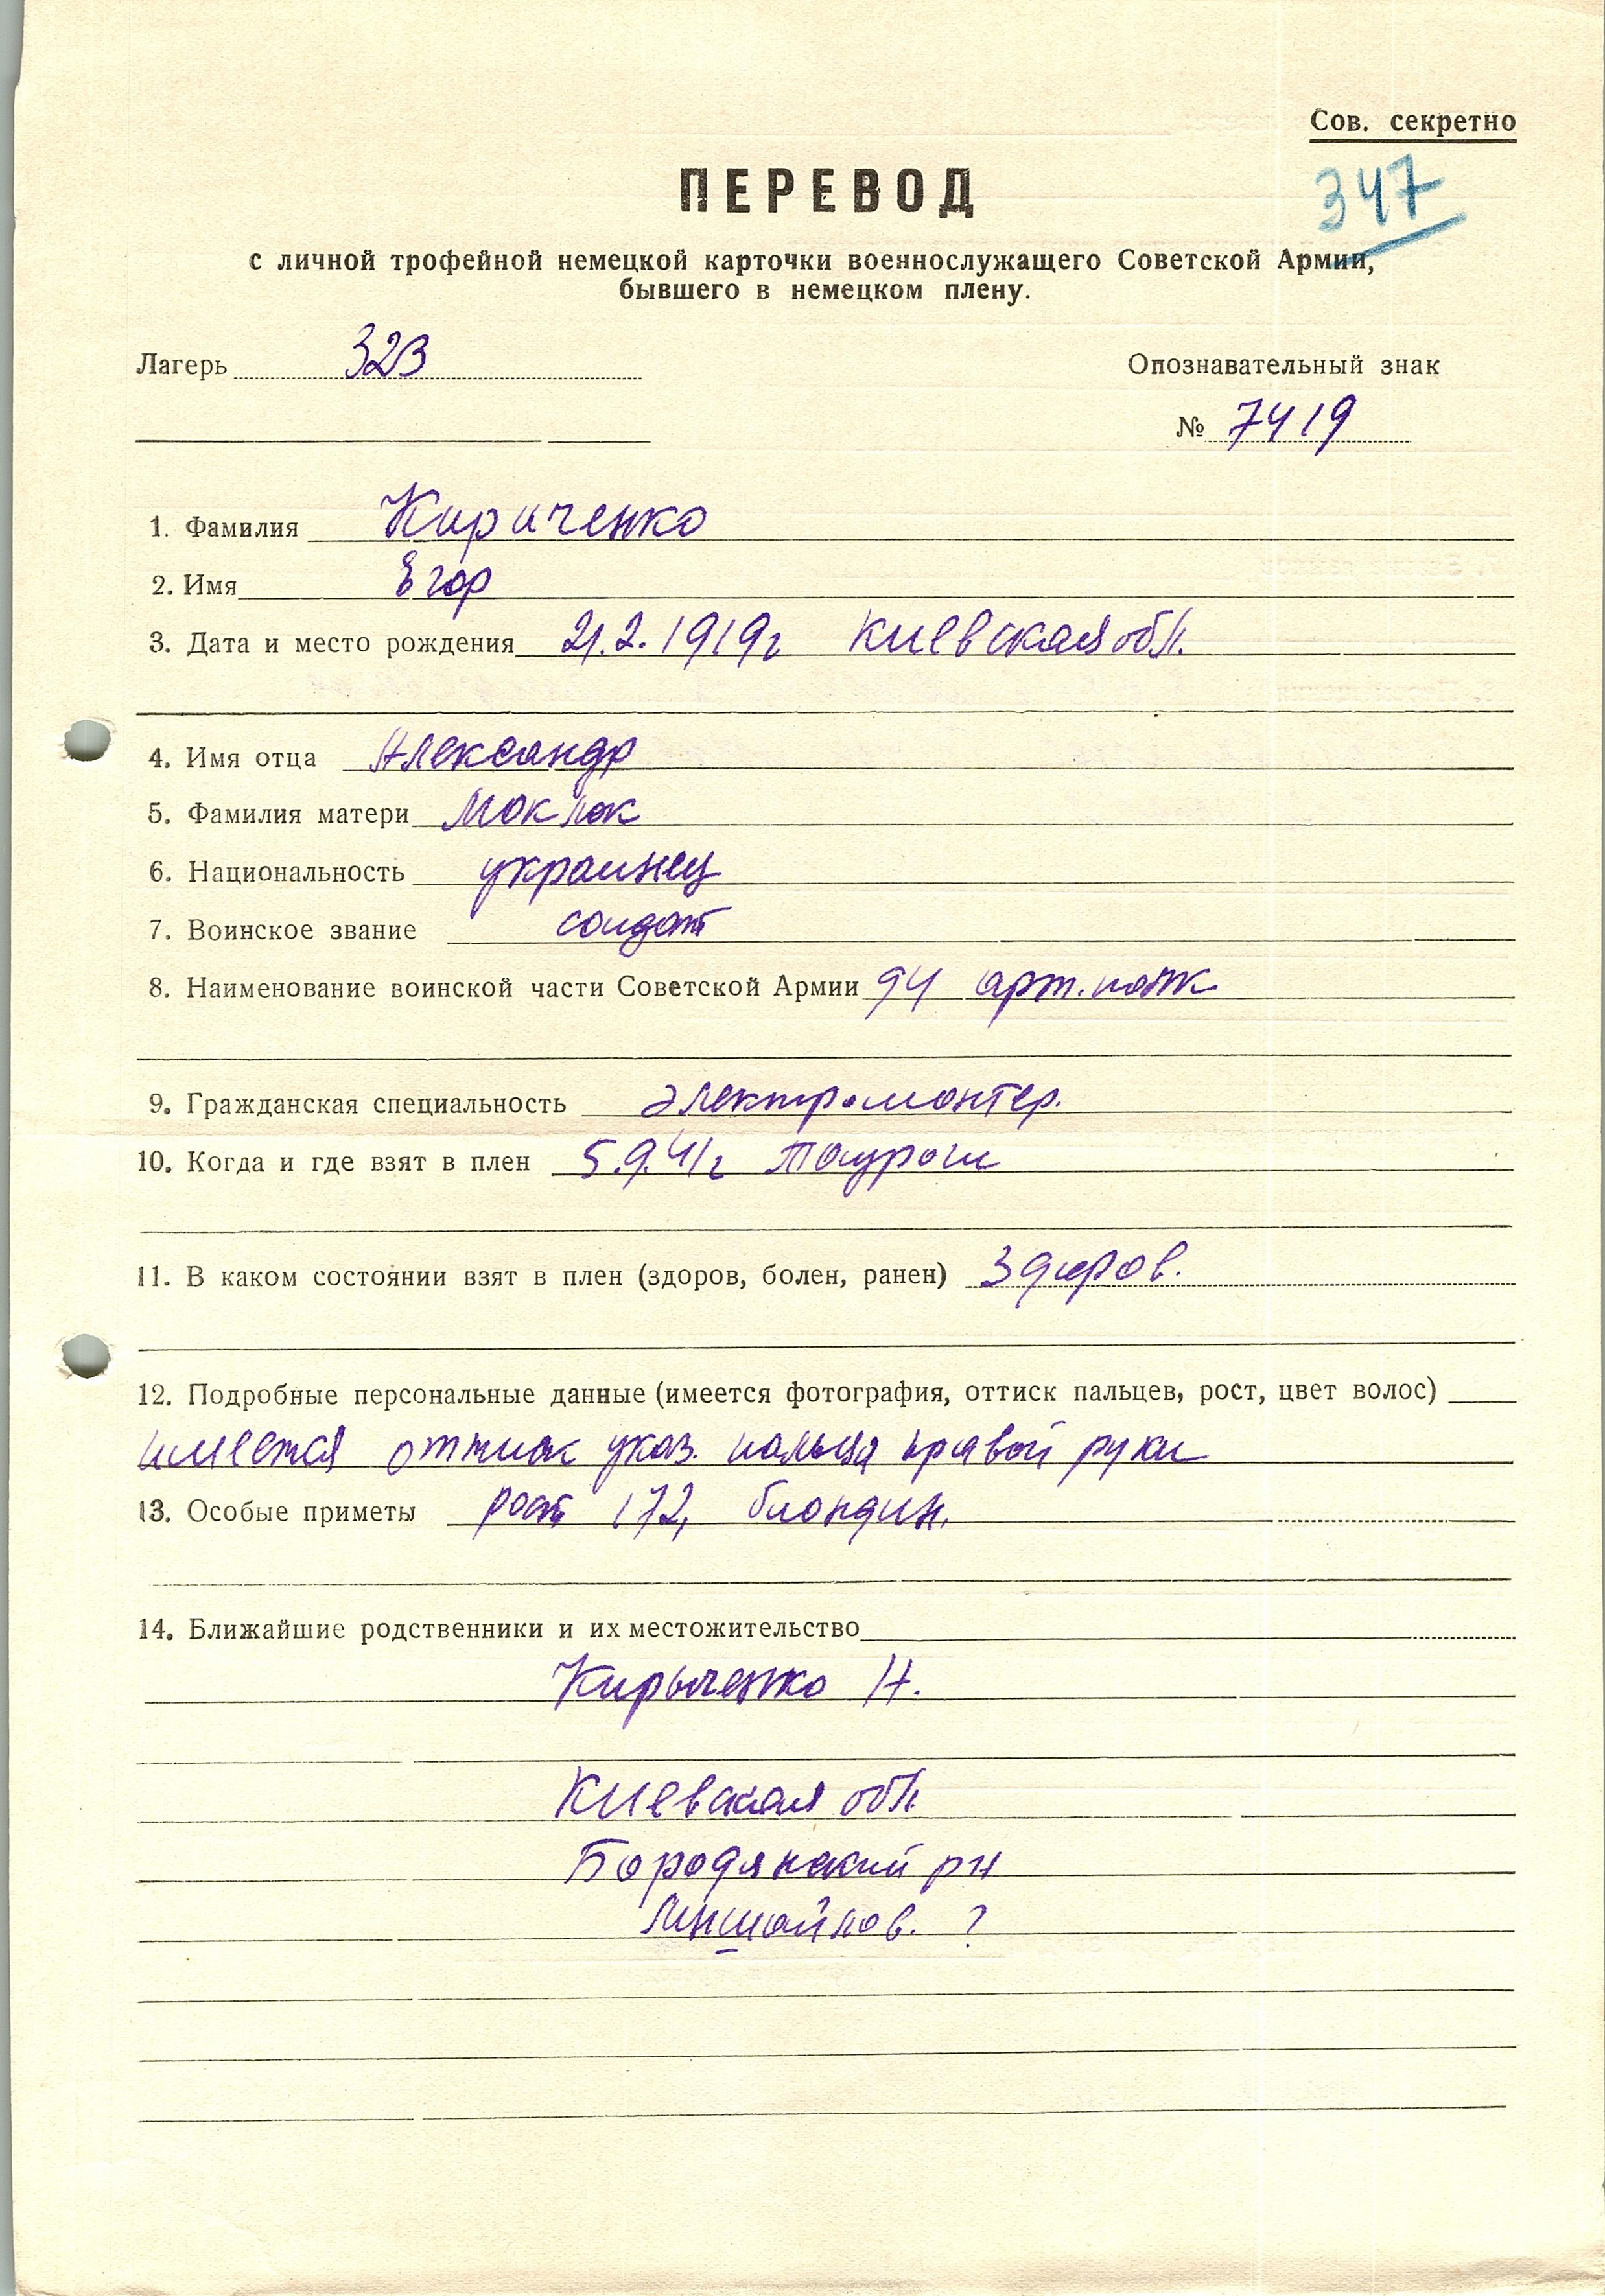 Сов. секретно
347
ПЕРЕВОД
с личной трофейной немецкой карточки военнослужащего Советской Армии,
бывшего в немецком плену.
Лагерь 323
Опознавательный знак
№ 7419
1. Фамилия Кириченко
2. Имя Егор
3. Дата и место рождения 21.2.1919г Киевская обл.
4. Имя отца Александр
5. Фамилия матери Моклок
6. Национальность украинец
7. Воинское звание солдат
8. Наименование воинской части Советской Армии 94 арт. полк
9. Гражданская специальность электромонтер.
10. Когда и где взят в плен 5.9.41г
11. В каком состоянии взят в плен (здоров, болен, ранен) здоров.
12. Подробные персональные данные (имеется фотография, оттиск пальцев, рост, цвет волос)
имеется оттиск указ. пальца правой руки
13. Особые приметы рост 172, блондин.
14. Ближайшие родственники и их местожительство
Кирыченко Н.
Киевская обл.
Бородянский рн
?